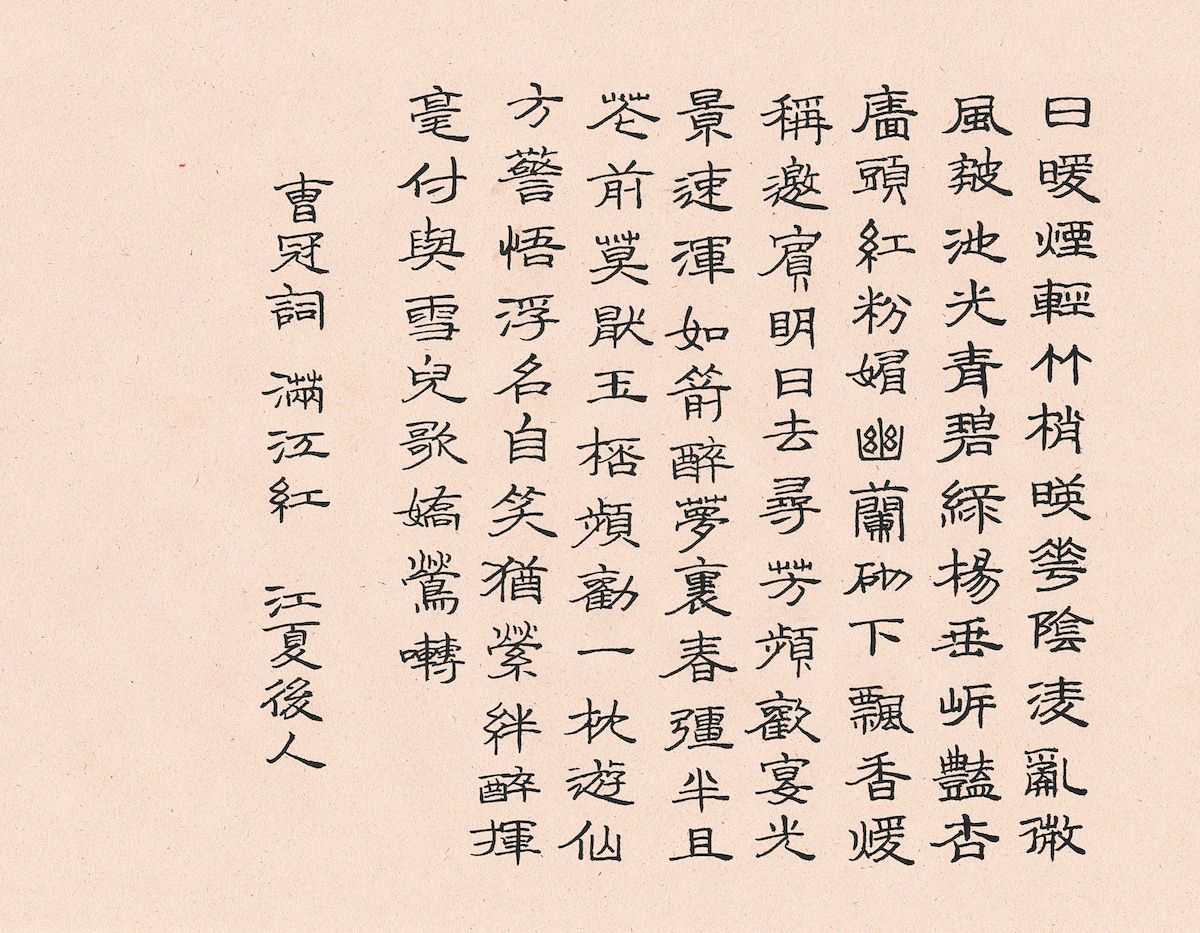 日暖煙輕竹梢暎華陰淩亂微
風皴池光青碧綠楊垂岍豔杏
廧頭紅粉媚幽蘭砌下飄香煖
稱邀賓明日去尋芳頻歡宴光
景速渾如箭醉夢裏春彊半且
花前莫厭玉桮頻勸一枕遊仙
方警悟浮名自笑猶縈絆醉揮
毫付與雪兒歌嬌鶯囀
曺冠詞 滿江紅 江夏後人